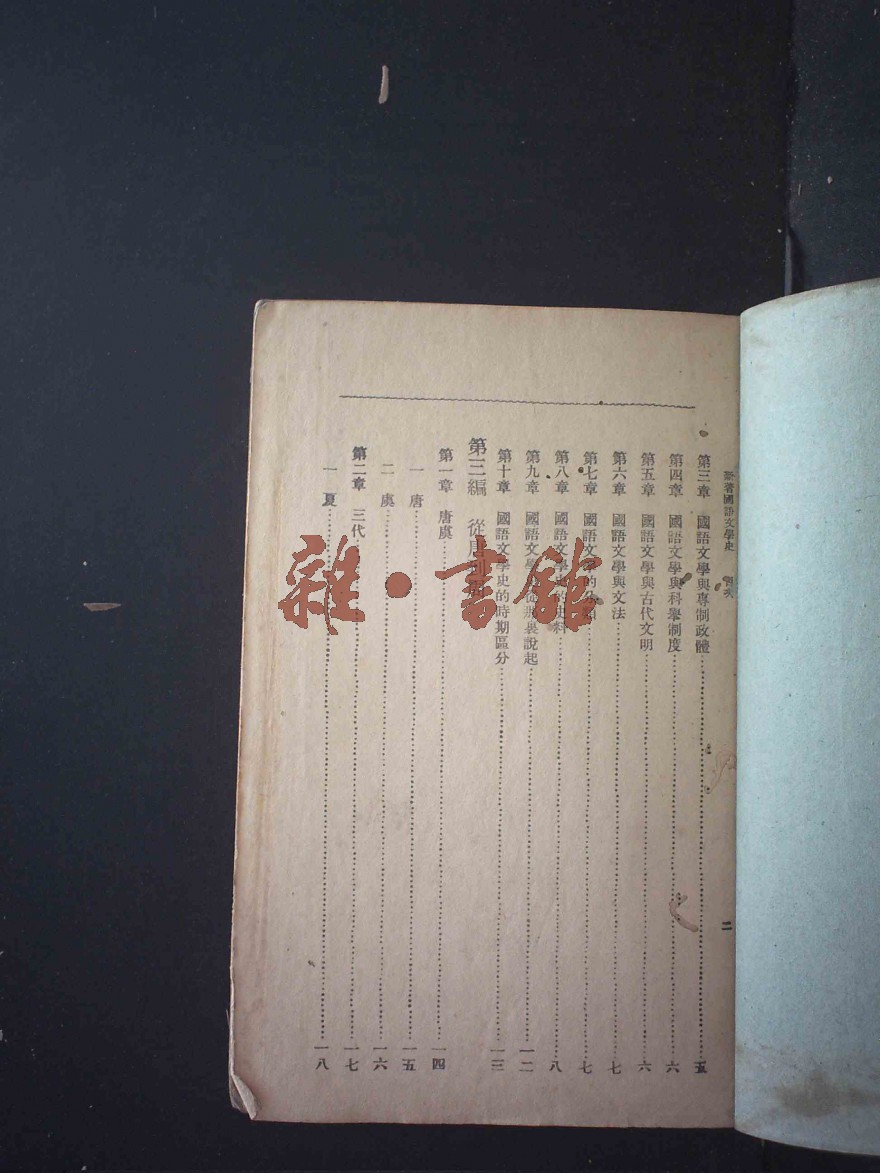 新著國語文學史 目次 二
第三章 國語文學與專制政體 五
第四章 國語文學與科舉制度 六
第五章 國語文學與古代文明 六
第六章 國語文學與文法 七
第七章 國語文學的分類 七
第八章 國語文學史的史料 八
第九章 國語文學 那裏說起 一二
第十章 國語文學史的時期區分 一三
編 從唐到
第一章 唐虞 一四
一 唐 一五
二 虞 一六
第二章 三代 一七
一 夏 一八
雜·書館